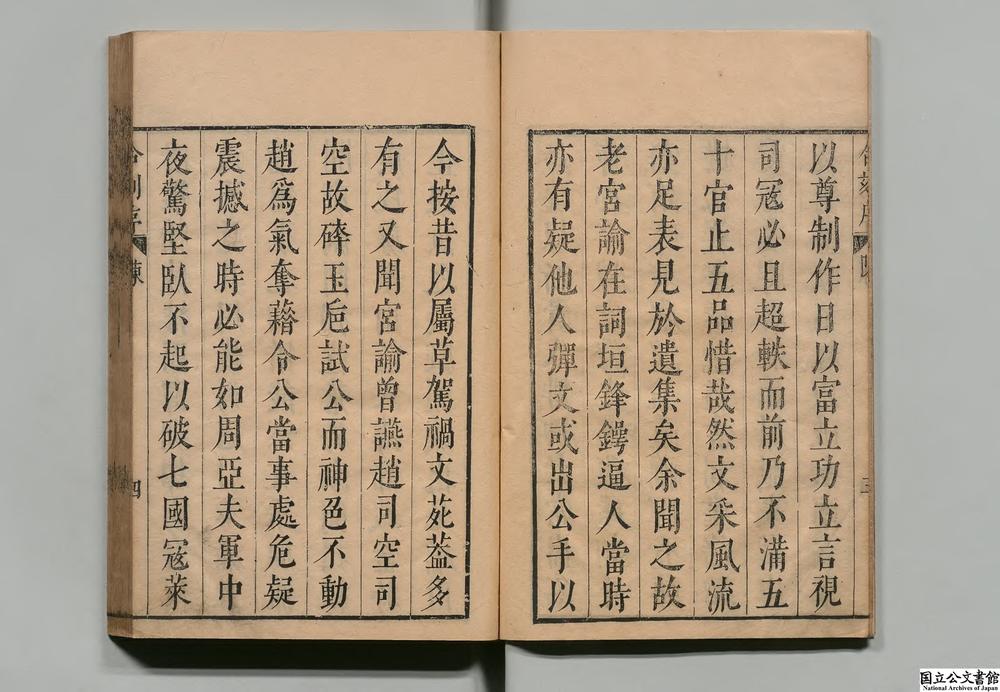 以尊制作日以富立功立言視
司冦必且超軼而前乃不滿五
十官止五品惜哉然文采風流
亦足表見於遺集矣余聞之故
老宮諭在詞垣鋒鍔逼人當時
亦有疑他人彈文或出公手以
今按昔以屬草駕禍文苑葢多
有之又聞宮諭曾讌趙司空司
空故碎玉巵試公而神色不動
趙爲氣奪藉令公當事處危疑
震撼之時必能如周亞夫軍中
夜驚堅臥不起以破七國冦萊
合刻序
陳
四
国立公文書館
National Archives of Japan